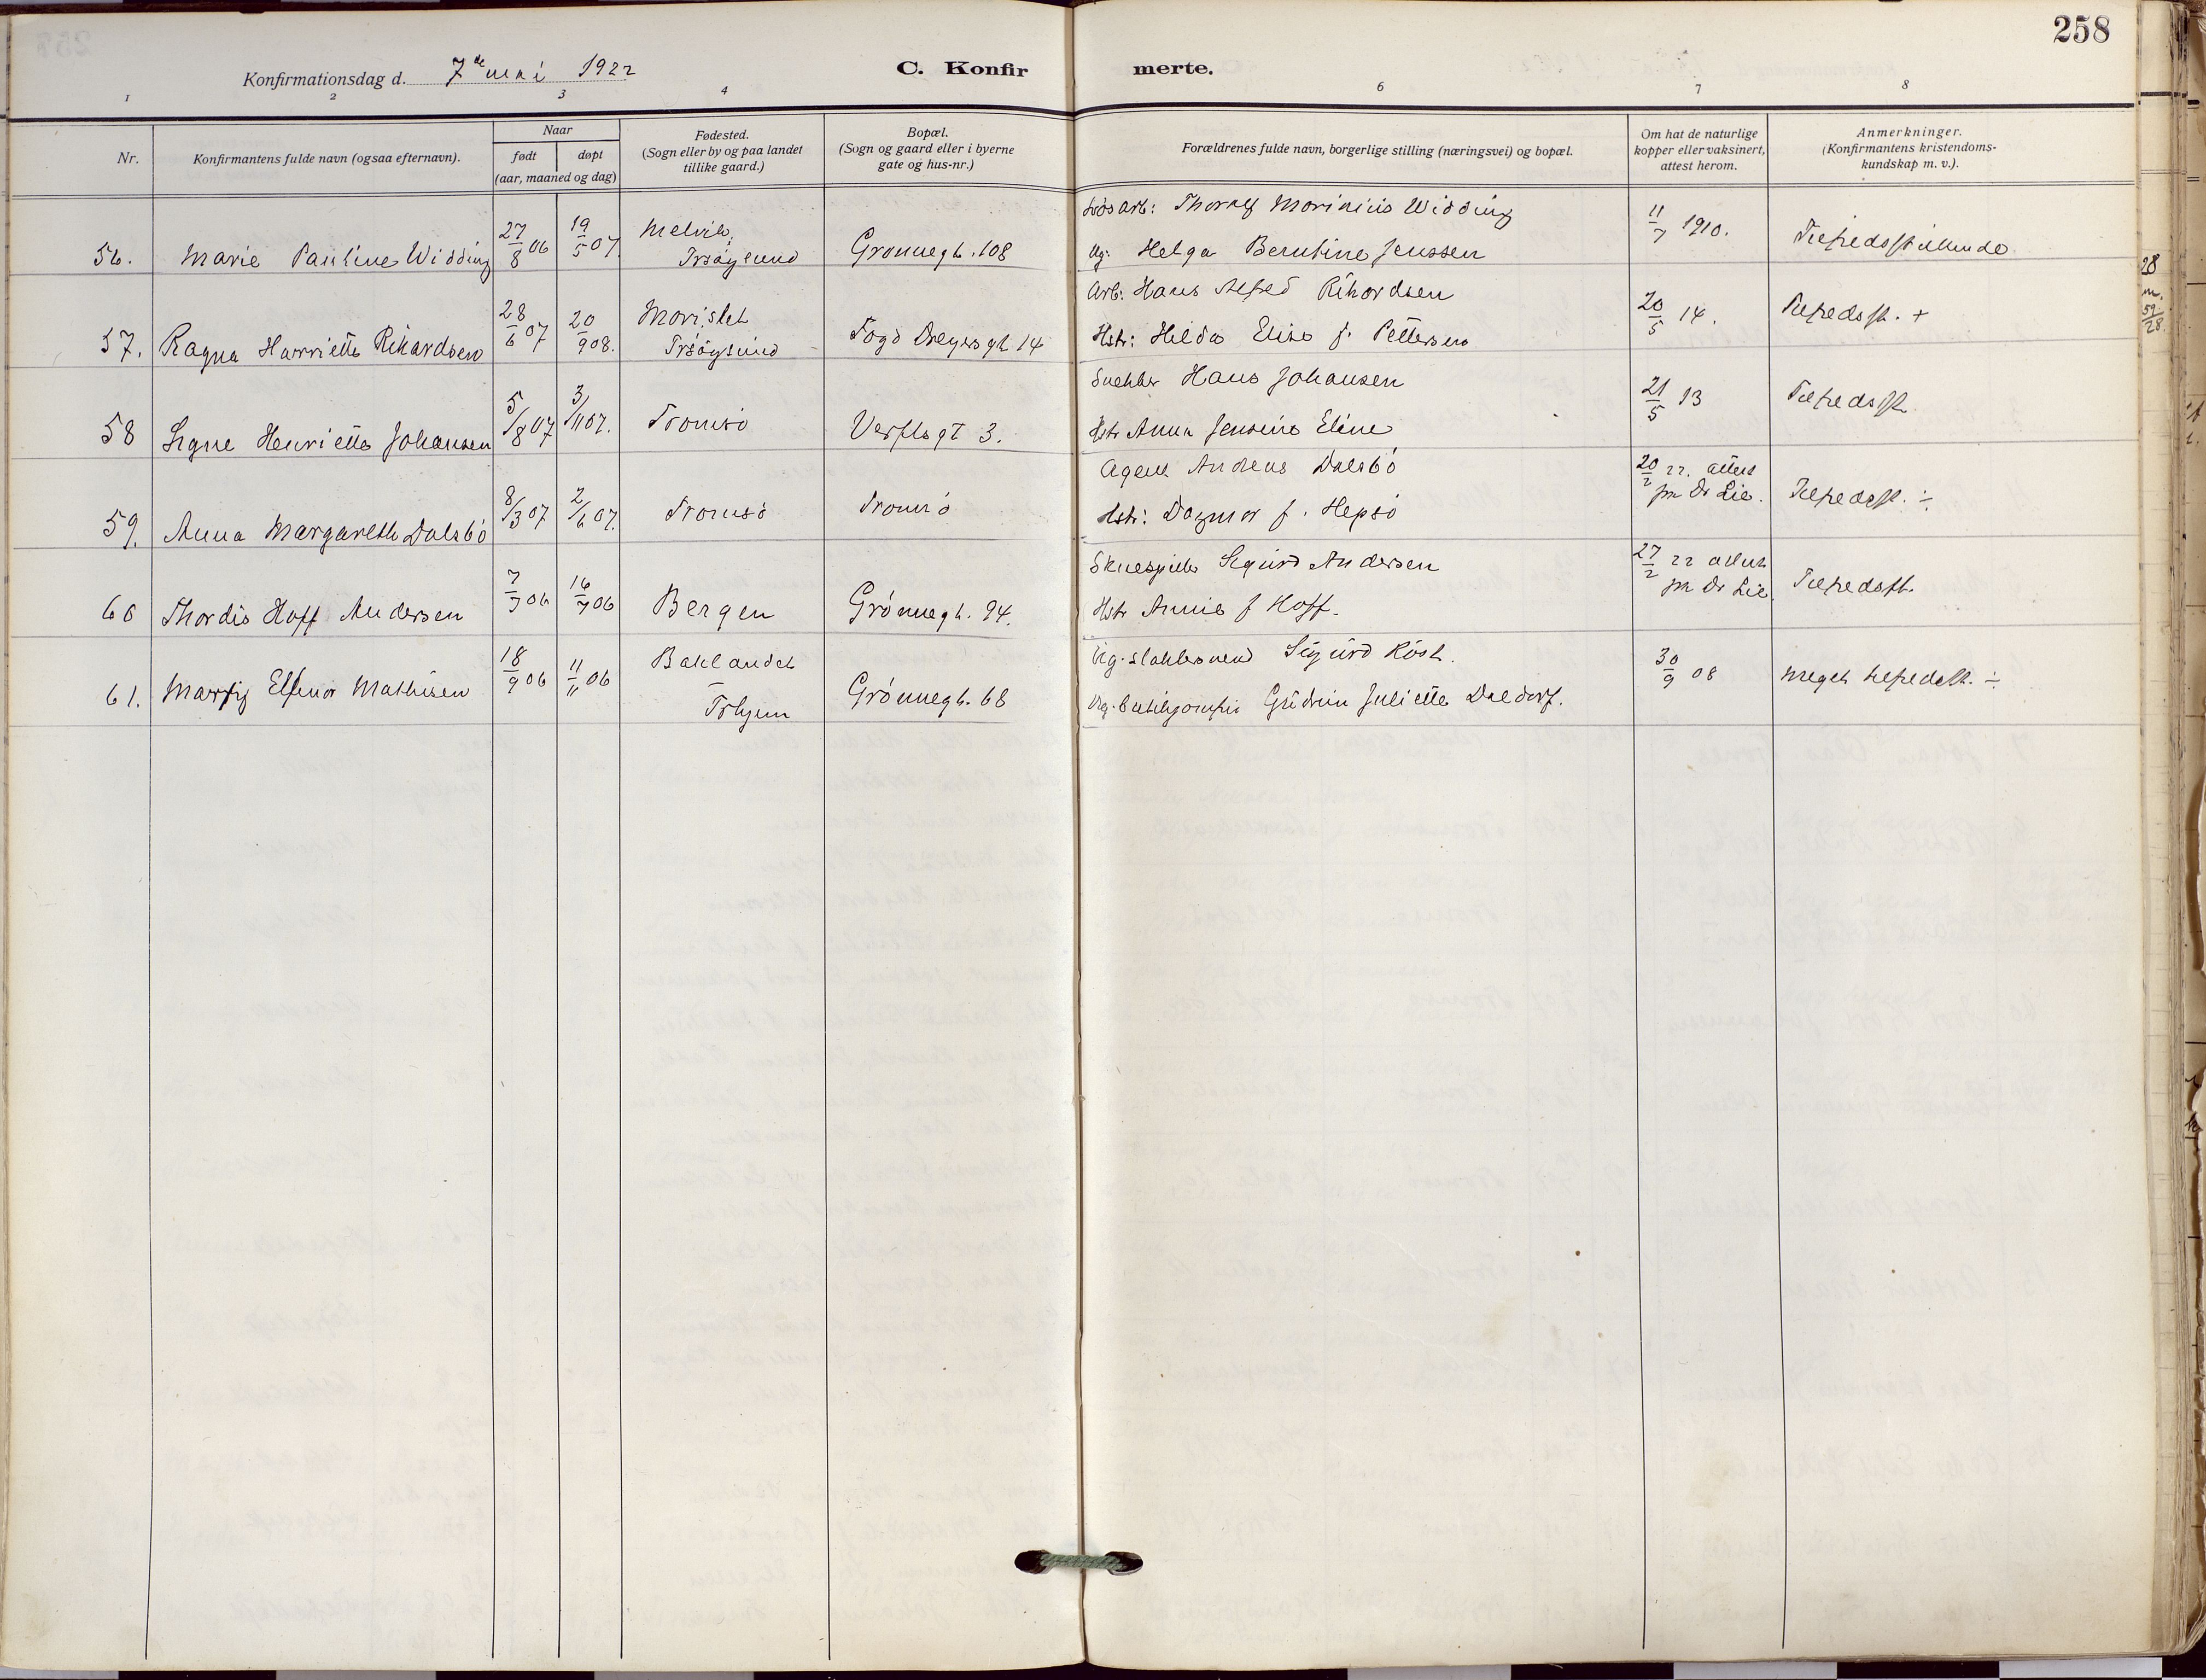 258
Konfirmationsdag d. 7de mai 1922
C. Konfirmerte.
1 2 3 4 6 7 8
Nr.
Konfirmantens fulde navn (ogsaa efternavn).
Naar
født døpt
(aar, maaned og dag)
Fødested.
(Sogn eller by og paa landet
tillike gaard.)
Bopæl.
(Sogn og gaard eller i byerne
gate og hus-nr.)
Forældrenes fulde navn, borgerlige stilling (næringsvei) og bopæl.
Om hat de naturlige
kopper eller vaksinert,
attest herom.
Anmerkninger.
(Konfirmantens kristendoms-
kundskap m. v.).
56. Marie Pauline Widding 27/8 06 19/5 07. Melvik, Trsøysund Grønnegt. 108
Løsarb: Thoralf Marinius Widding
Ug: Helga Berntine Jenssen
11/7 1910. Tilfredsstillende
57. Ragna Harriette Rikardsen 28/6 07 20/9 08. Trsøysund Fogd Dreyersgt 14
Arb: Hans Alfred Rikardsen
Hstr: Hilda Elise f. Pettersen
20/5 14. Tilfredsst. +
58 Signe Henriette Johansen 5/8 07 3/11 07. Tromsø Verftsgt 3.
Snekker Hans Johansen
Hstr Anna Jensine Eline
21/5 13 Tilfredsst.
59. Anna Margarethe Dalsbø 8/3 07 2/6 07. Tromsø Tromsø
Agent Andreas Dalsbø
Hstr: Dagmar f. Hepsø
20/2 22. attest fra Dr Lie. Tilfredsst. ÷
60 Thordis Hoff Andersen 7/3 06 16/7 06 Bergen Grønnegt. 94.
Skuespiller Sigurd Andersen
Hstr Annie f Hoff.
27/2 22 attest fra Dr Lie. Tilfredsst.
61. Marfig Ellinor Mathisen 18/9 06 11/11 06 Baklandet Trhjem Grønnegt. 68
Ug. slaktersvend Sigurd Røst.
Ug. butikjomfru Gudrun Juliette Daldorf.
30/9 08 Meget tilfredsst. ÷